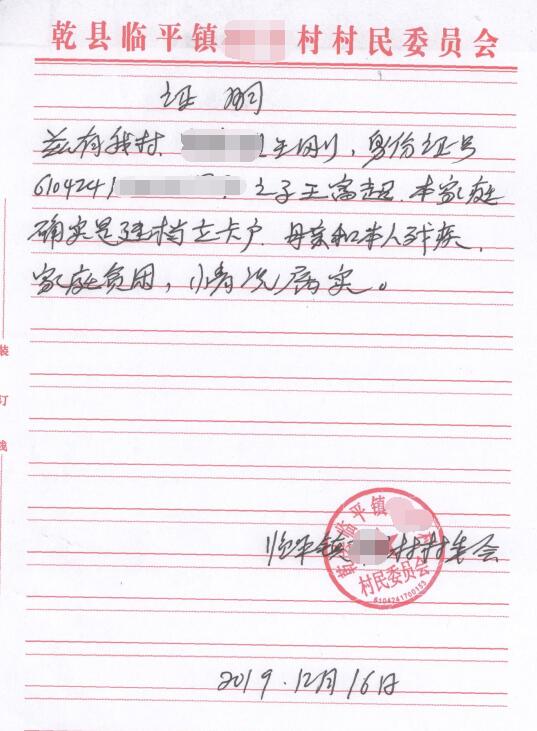 乾县临平镇 村村民委员会
证明
兹有我村 王刚,身份证号
6104241 之子王富超.本家庭
确实是建档立卡户.母亲和本人残疾.
家庭贫困,情况属实。
装
订
线
乾县临平镇
村民委员会
6104241700153
临平镇 村村委会
2019.12月16日